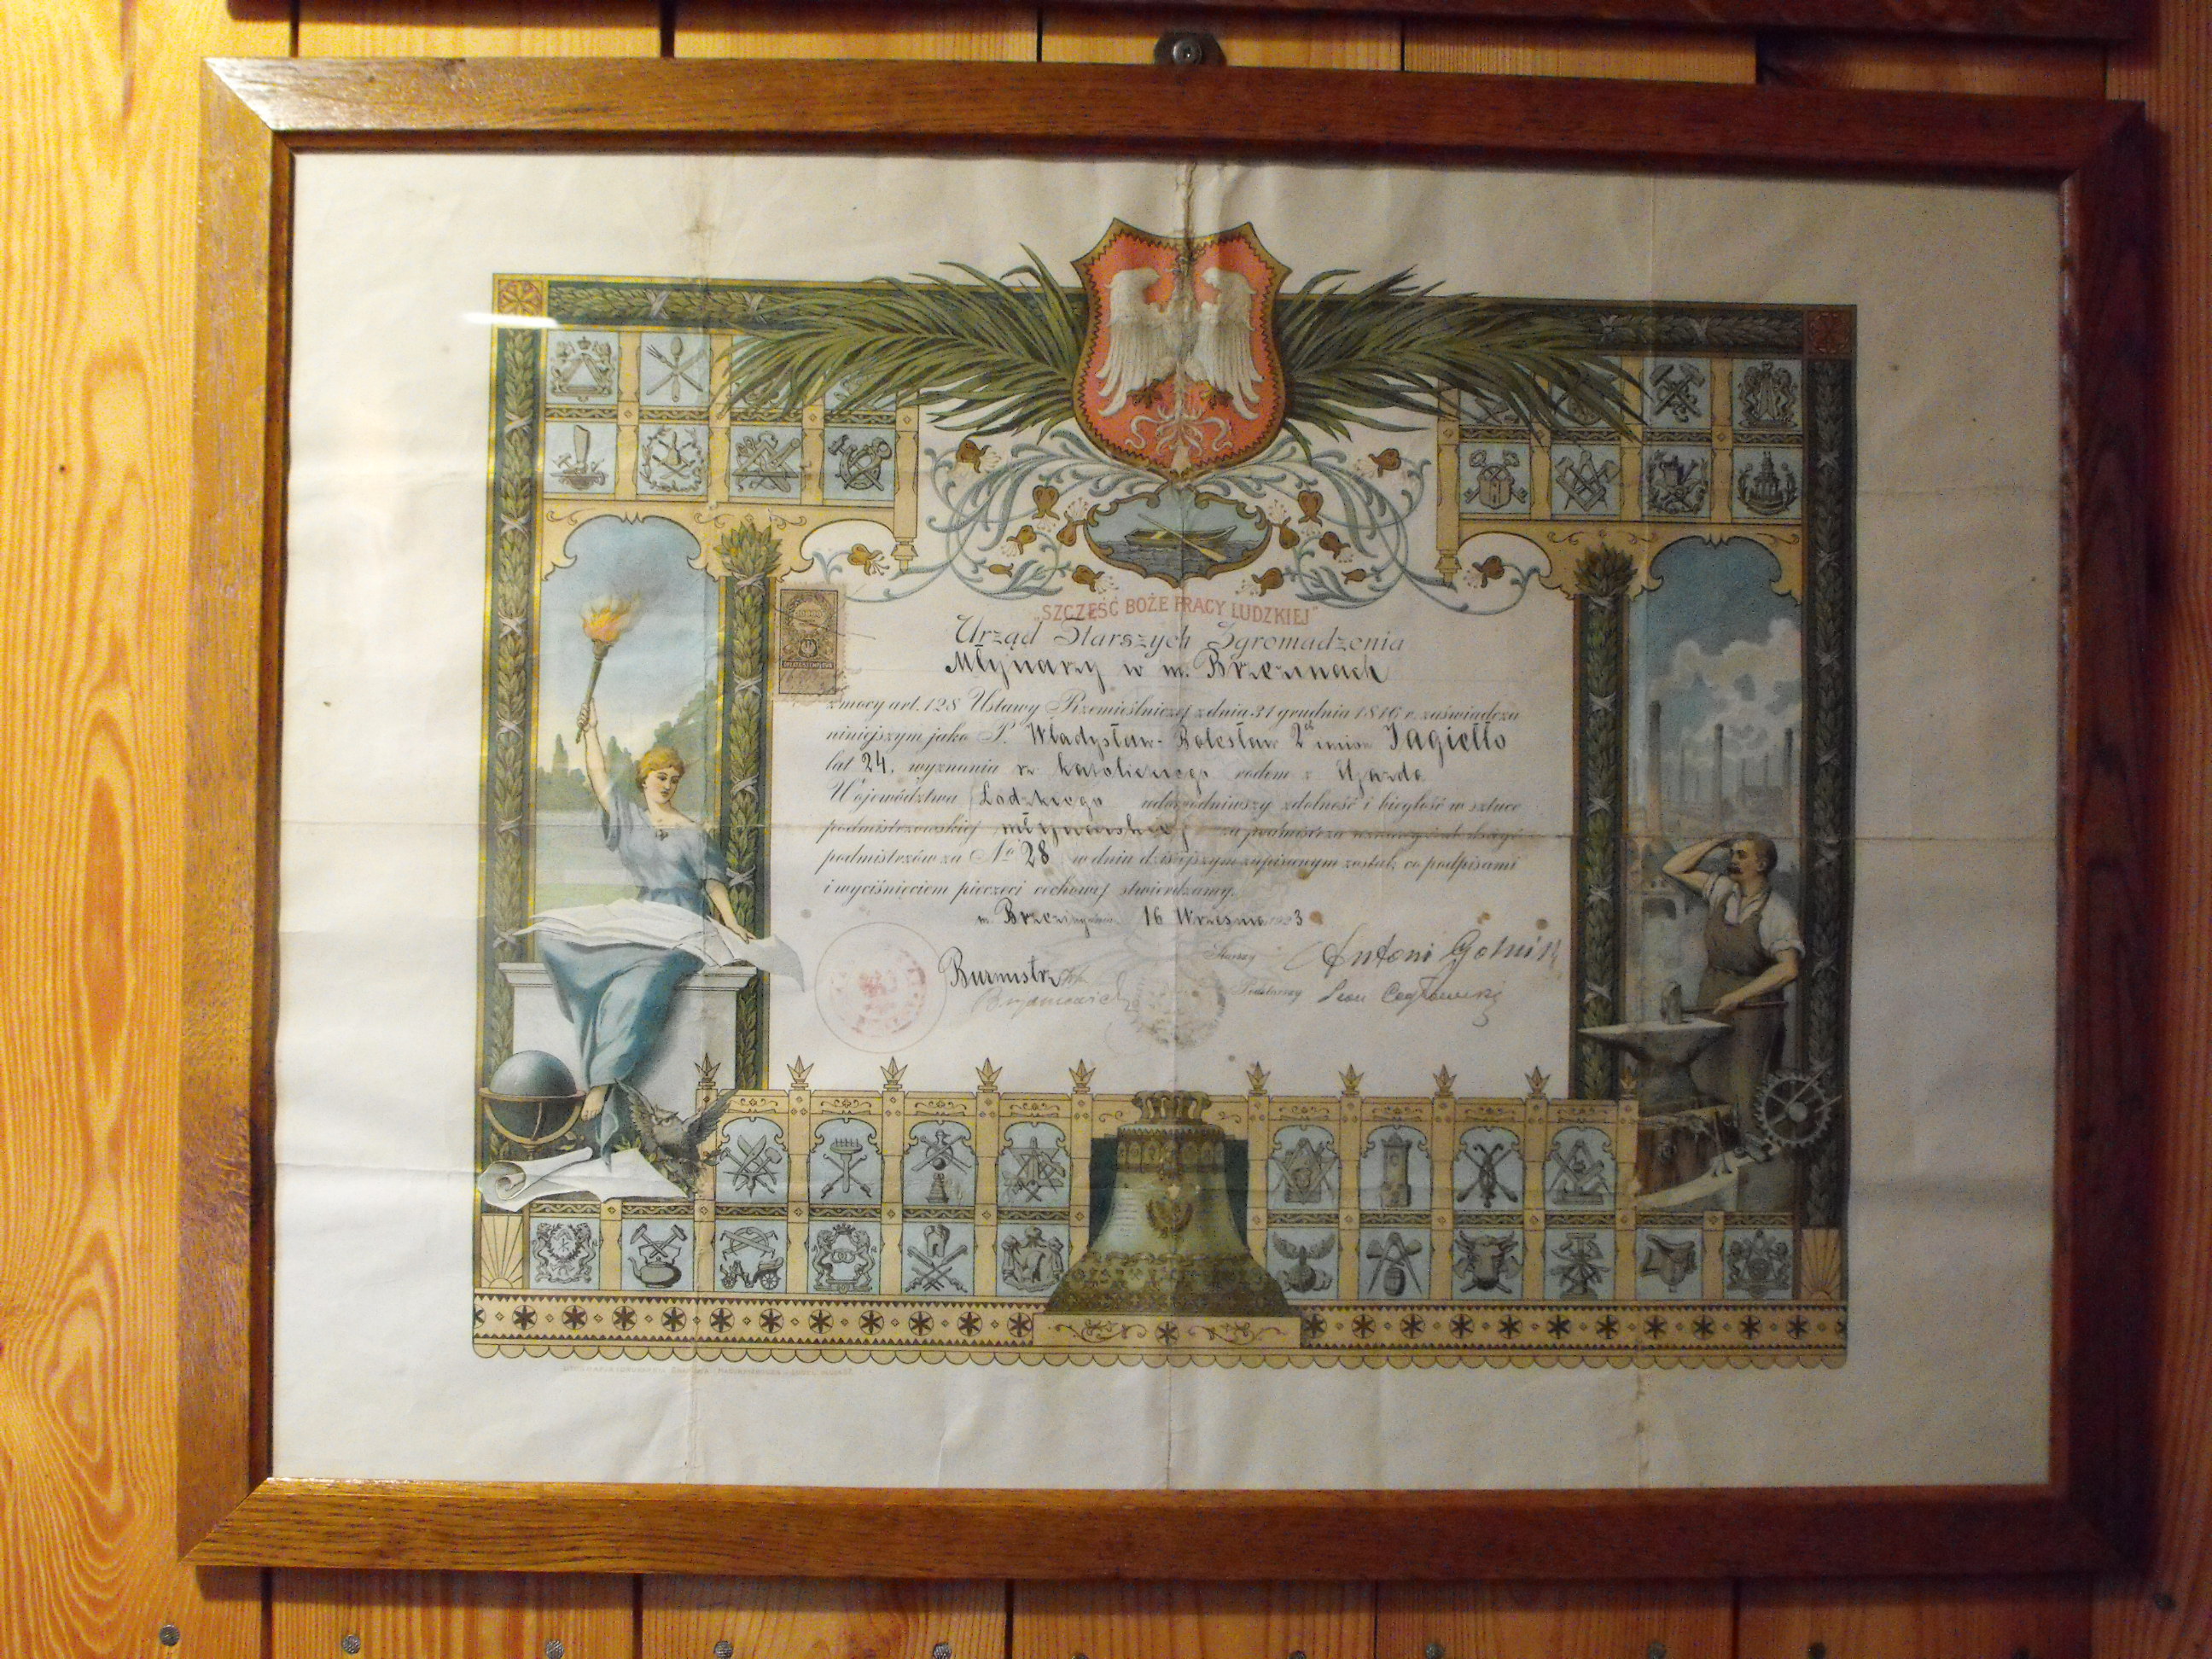 „SZCZĘŚĆ BOŻE PRACY LUDZKIEJ"
Urząd Starszych Zgromadzenia
Młynarzy w m. Brzezinach
z mocy art. 128 Ustawy Rzemieślniczej z dnia 31 grudnia 1816 r. zaświadcza
niniejszym jako P. Władysław-Bolesław 2ch imion Jagiełło
lat 24. wyznania rz katolickiego rodem z Ujazda
Województwa Łódzkiego udowodniwszy zdolność i biegłość w sztuce
podmistrzowskiej młynarskiej za podmistrza
podmistrzów za No 28 w dniu dzisiejszym zapisanym został, co podpisami
i wyciśnięciem pieczęci cechowej stwierdzamy.
m. 16 Września 1923
Starszy Antoni
Burmistrz
Podstarszy Leon